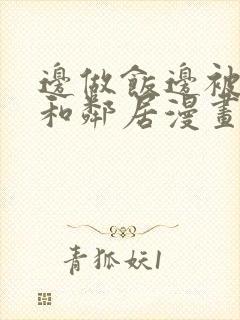 邊做飯邊被
和鄰居漫畫
青狐妖1